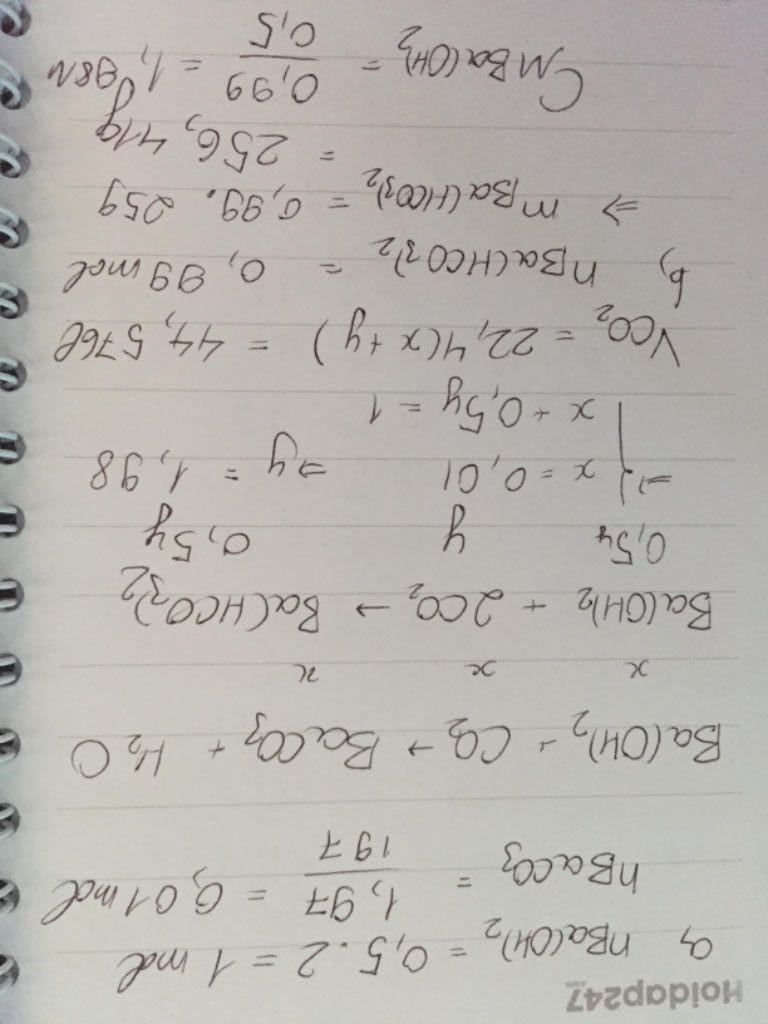 Hoidap247.com
a, nBa(OH)₂ = 0,5 . 2 = 1 mol
nBaCO₃ = 1,97/197 = 0,01 mol
Ba(OH)₂ + CO₂ → BaCO₃ + H₂O
x x x
Ba(OH)₂ + 2CO₂ → Ba(HCO₃)₂
0,5y y 0,5y
⇒ { x = 0,01 ⇒ y = 1,98
x + 0,5y = 1
VCO₂ = 22,4(x + y) = 44,576l
b, nBa(HCO₃)₂ = 0,99 mol
⇒ mBa(HCO₃)₂ = 0,99 . 259
= 256,41g
CMBa(OH)₂ = 0,99/0,5 = 1,98M